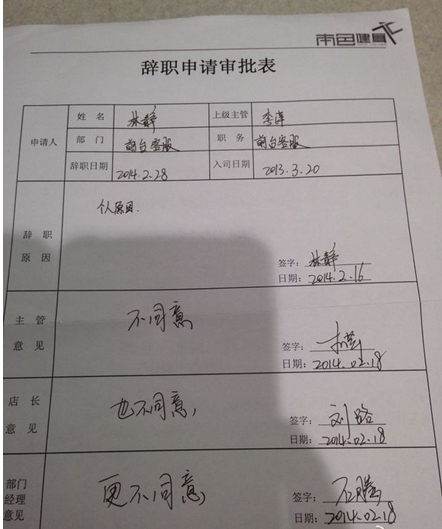 南邑健身
辞职申请审批表
申请人
姓 名 林静 上级主管 李萍
部 门 前台客服 职 务 前台客服
辞职日期 2014.2.28 入司日期 2013.3.20
辞 职
原 因
个人原因.
签字: 林静
日期: 2014.2.16
主 管
意 见
不同意
签字:
日期: 2014.02.18
店 长
意 见
也不同意,
签字: 刘路
日期: 2014.02.18
部门
经理
意见
更不同意
签字: 石腾
日期: 2014.02.18